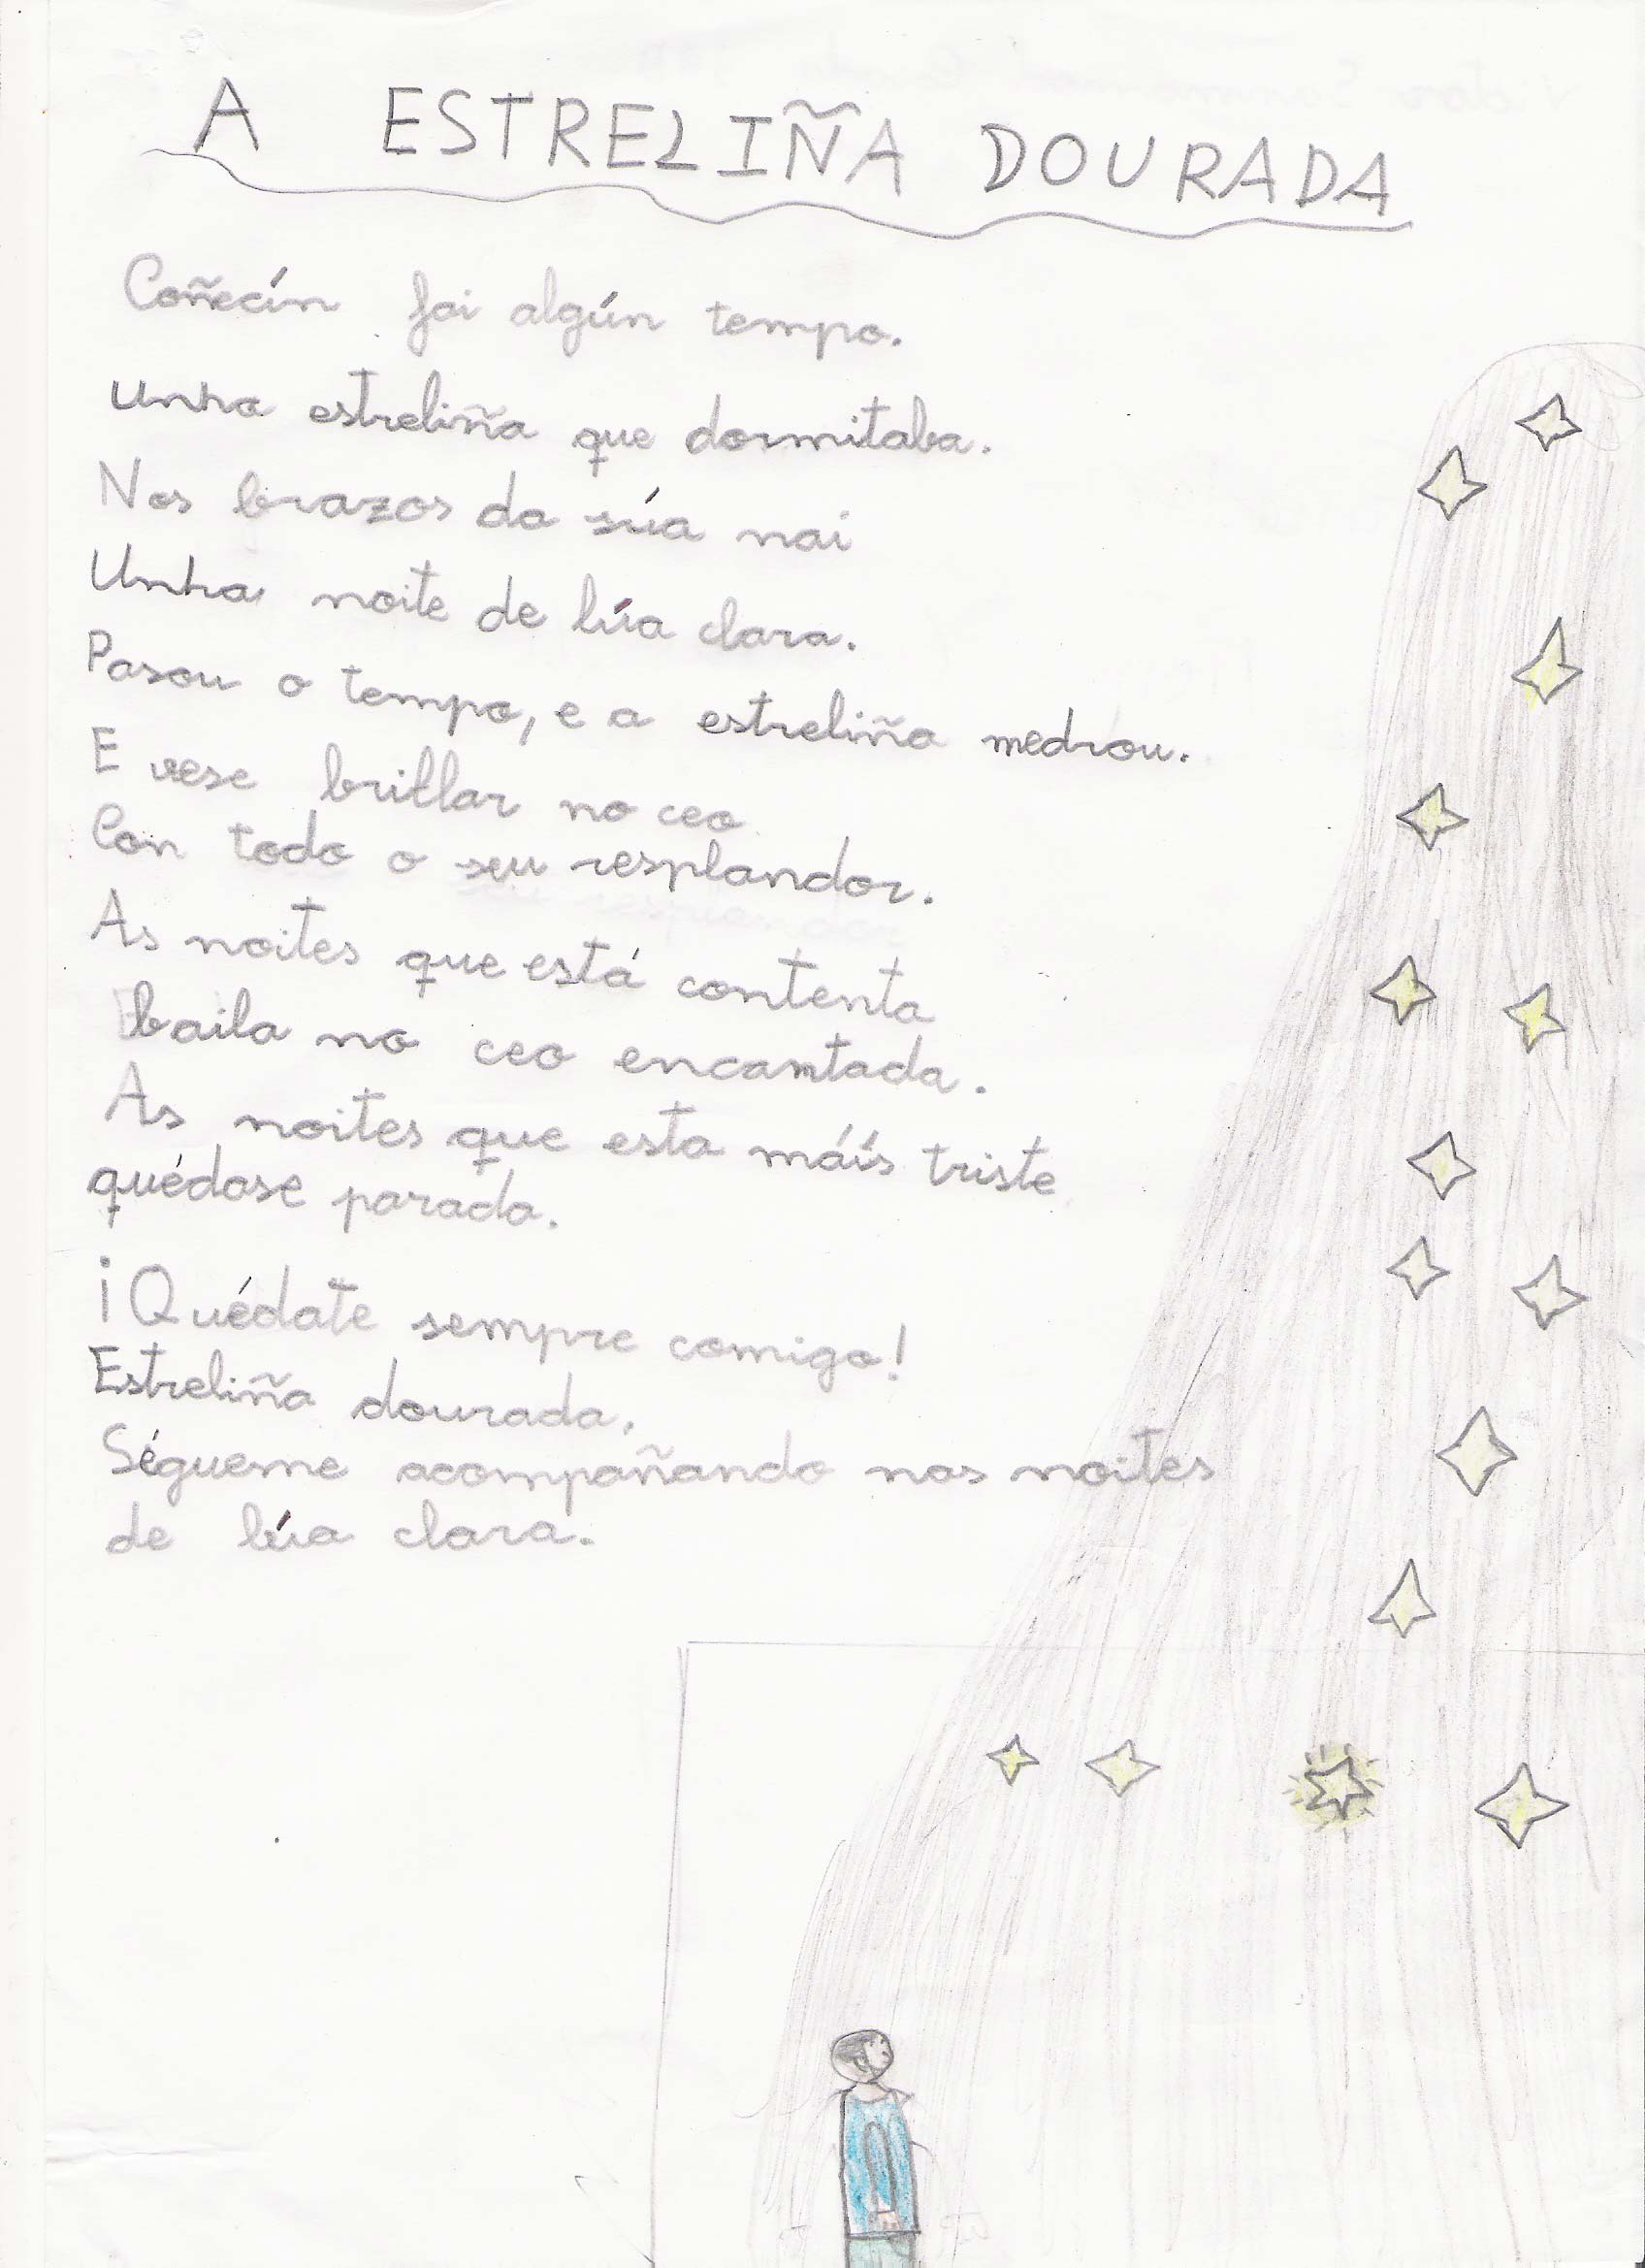 A ESTRELIÑA DOURADA
Coñecín fai algún tempo.
Unha estreliña que dormitaba.
Nos brazos da súa nai
Unha noite de lúa clara.
Pasou o tempo, e a estreliña medrou.
E vese brillar no ceo
Con todo o seu resplandor.
As noites que está contenta
baila no ceo encantada.
As noites que esta máis triste
quédase parada.
¡Quédate sempre comigo!
Estreliña dourada,
Ségueme acompañando nas noites
de lúa clara.